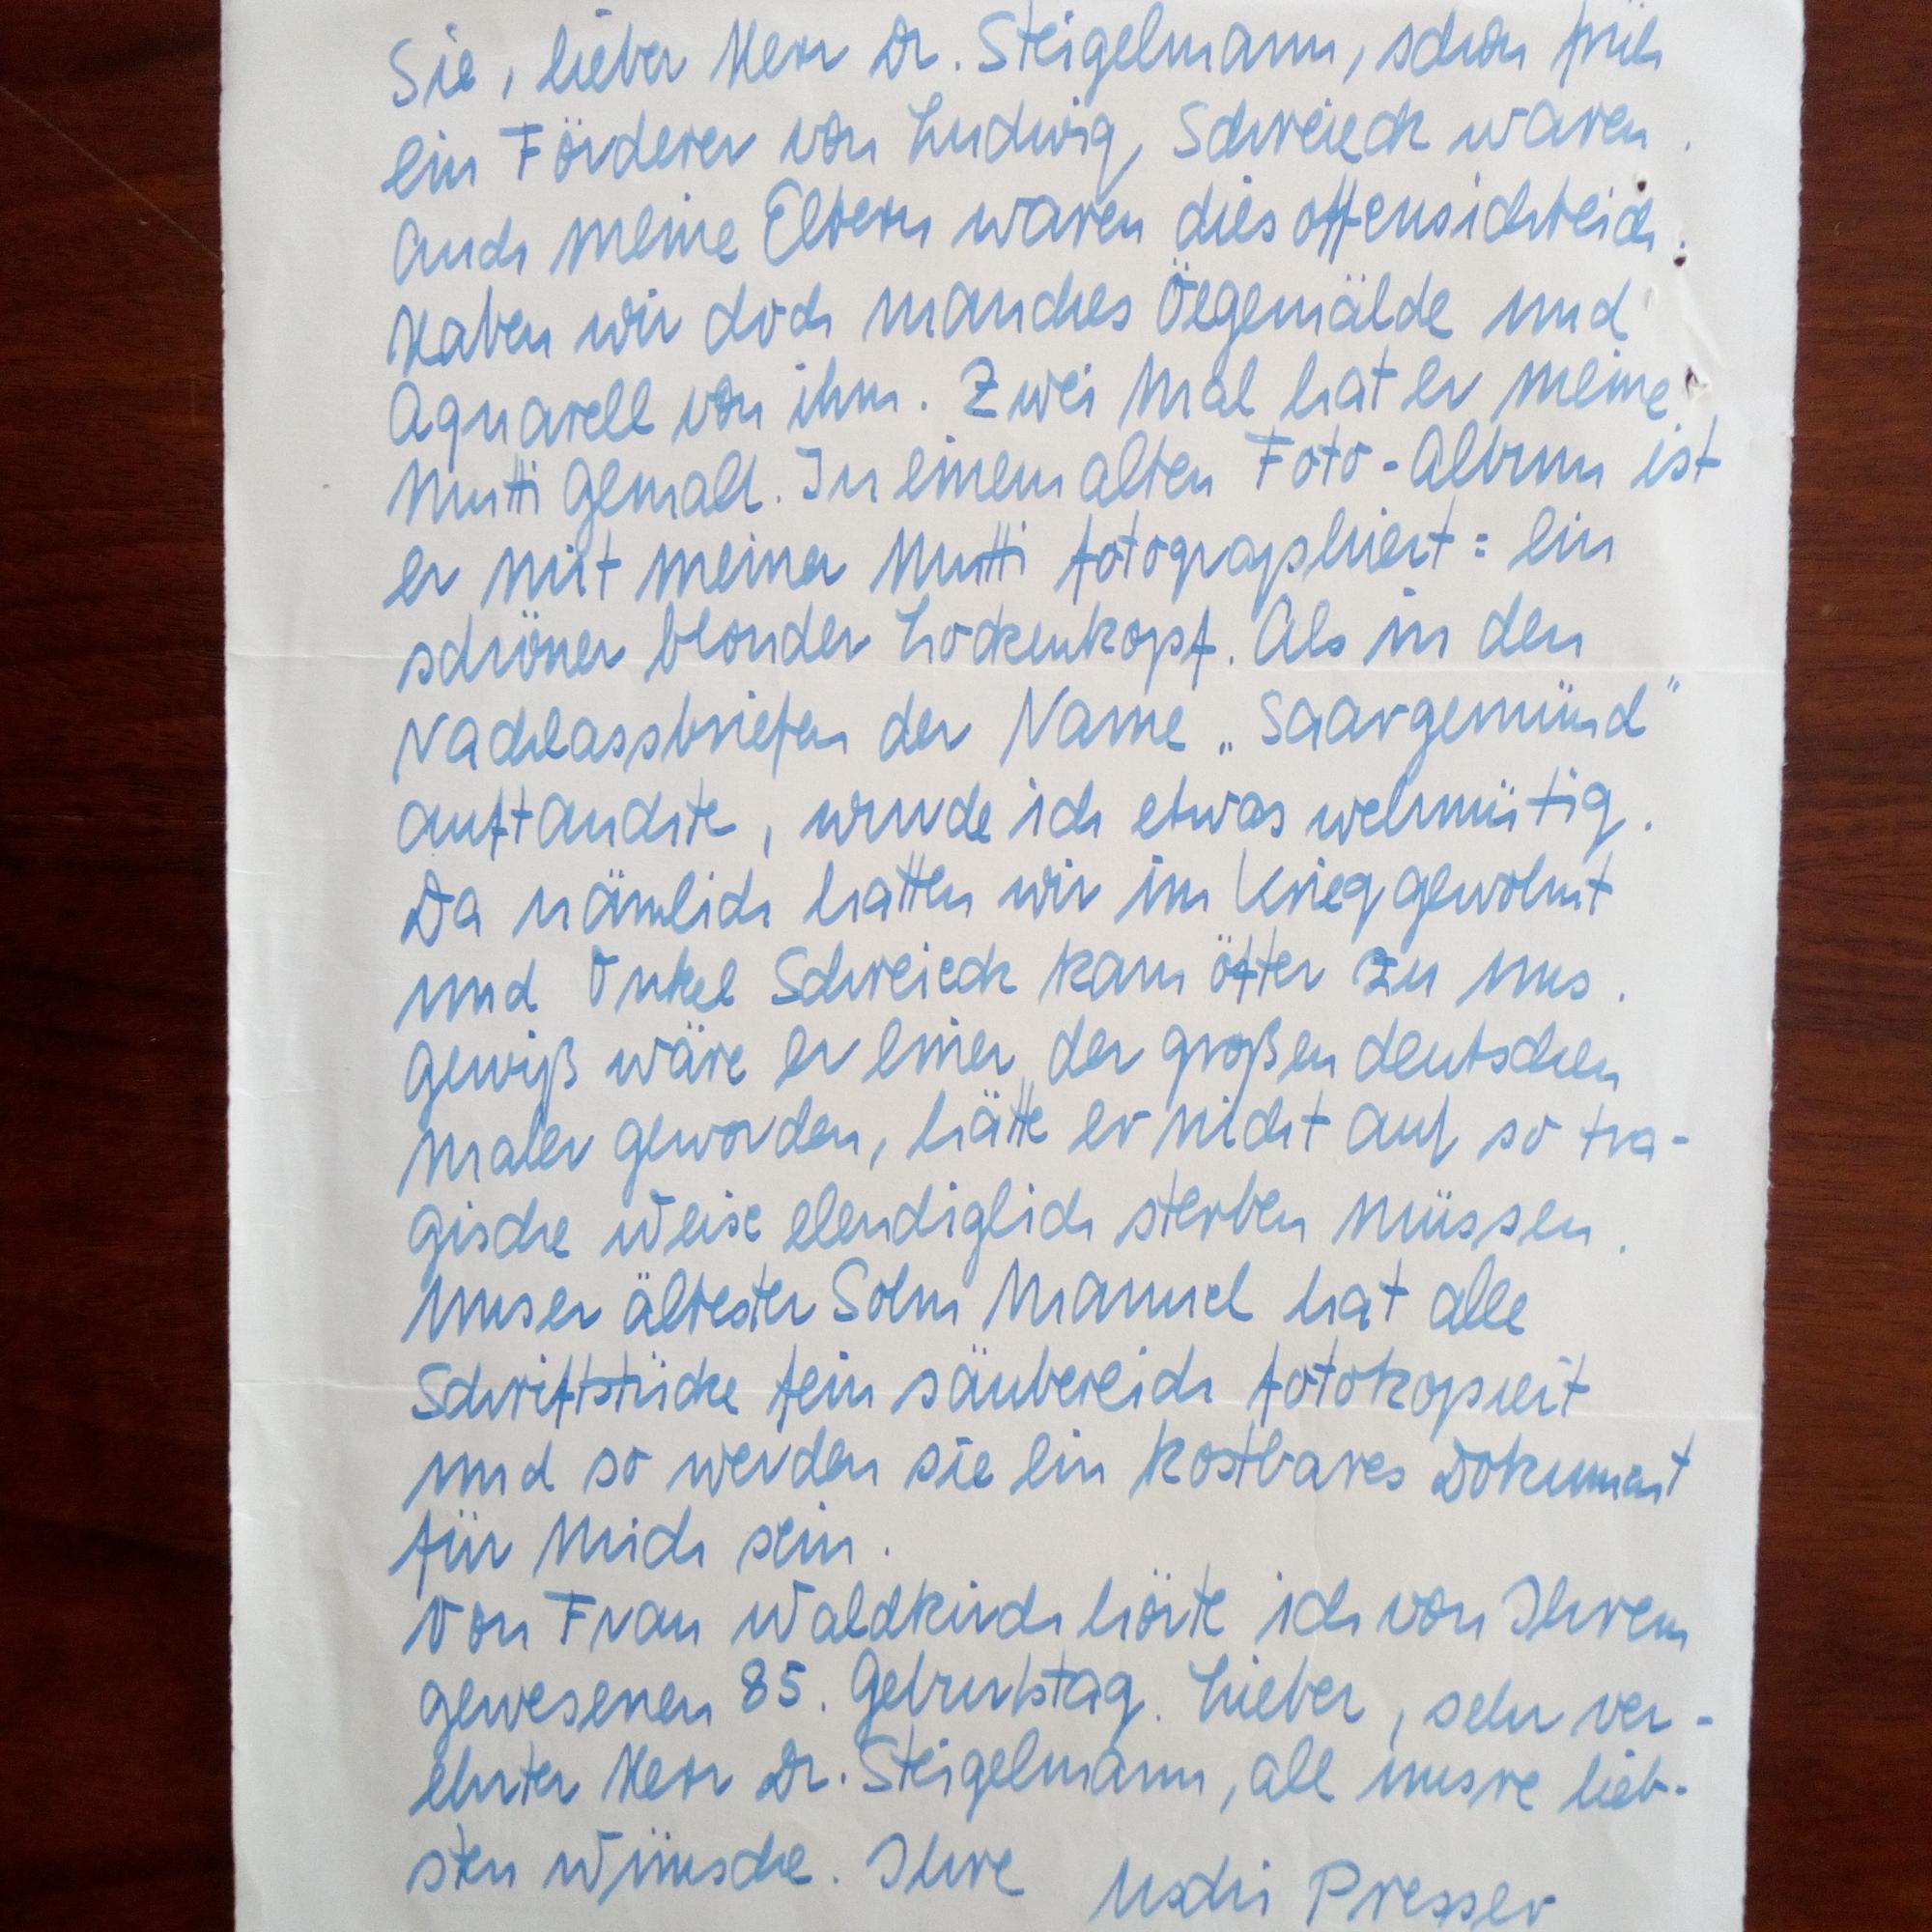 Sie, lieber Herr Dr. Steigelmann, schon früh
ein Förderer von Ludwig Schreieck waren.
Auch meine Eltern waren dies offensichtlich.
Haben wir doch manches Ölgemälde und
Aquarell von ihm. Zwei Mal hat er meine
Mutti gemalt. In einem alten Foto-Album ist
er mit meiner Mutti fotographiert: ein
schöner blonder Lockenkopf. Als in den
Nachlassbriefen der Name „Saargemünd"
auftauchte, wurde ich etwas wehmütig.
Da nämlich hatten wir im Krieg gewohnt
und Onkel Schreieck kam öfter zu uns.
Gewiß wäre er einer der großen deutschen
Maler geworden, hätte er nicht auf so tra-
gische Weise elendiglich sterben müssen.
Unser ältester Sohn Manuel hat alle
Schriftstücke fein säuberlich fotokopiert
und so werden sie ein kostbares Dokument
für mich sein.
Von Frau Waldkirch hörte ich von Ihrem
gewesenen 85. Geburtstag. Lieber, sehr ver-
ehrter Herr Dr. Steigelmann, all unsre lieb-
sten Wünsche. Ihre Uschi Presser